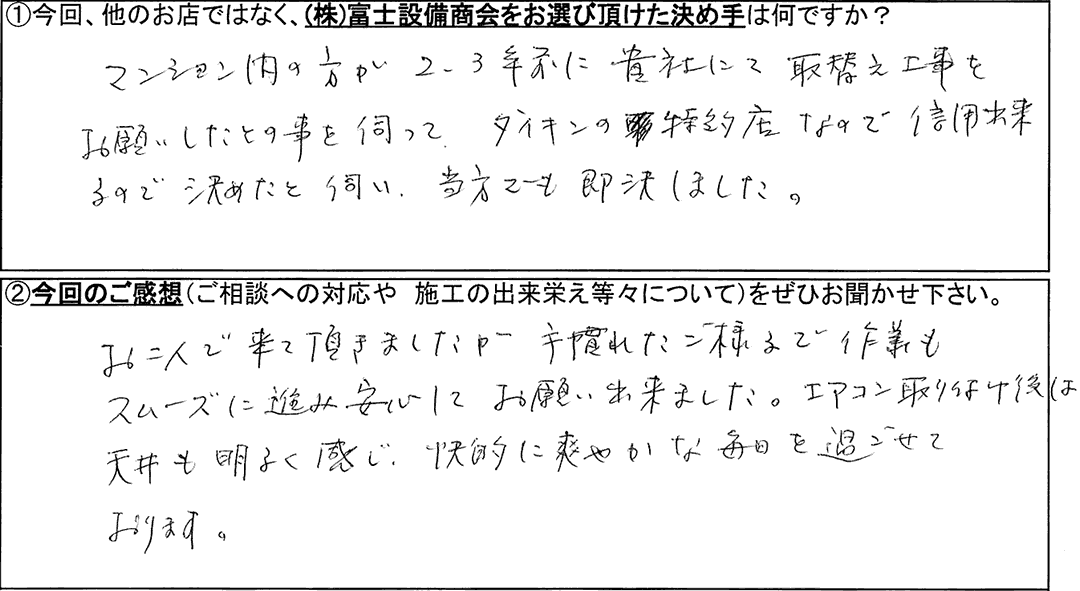 ①今回、他のお店ではなく、(株)富士設備商会をお選び頂けた決め手は何ですか?
マンション内の方が 2-3年前に 貴社にて 取替え工事を
お願いしたとの事を伺って、ダイキンの特約店なので信用出来
るので決めたと伺い、当方でも即決しました。
②今回のご感想(ご相談への対応や 施工の出来栄え等々について)をぜひお聞かせ下さい。
お二人で来て頂きましたが 手慣れたご様子で作業も
スムーズに進み安心してお願い出来ました。エアコン取り付け後は
天井も明るく感じ、快的に爽やかな毎日を過ごせて
おります。